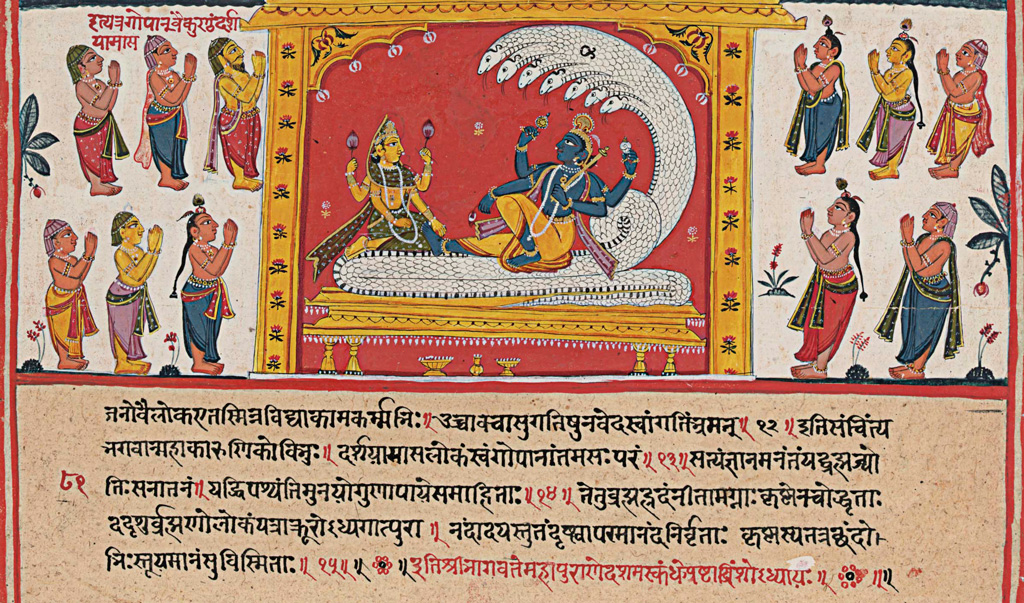 इत्यत्रगोपान्वैकुण्ठंदर्श
यामास
जनोवैलोकएतस्मिन्नविद्याकामकर्म्मभिः॥उच्चावचासुगतिषुनवेदस्वांगतिंभ्रमन्॥१२॥इतिसंचिंत्य
भगवान्महाकारुणिकोविभुः॥दर्शयामासलोकंस्वंगोपानांतमसःपरं॥१३॥सत्यंज्ञानमनंतंयद्ब्रह्मज्यो
८१ तिःसनातनं॥यद्धिपश्यंतिमुनयोगुणापायेसमाहिताः॥१४॥तेतुब्रह्मह्रदंनीतामग्नाःकृष्णेनचोद्धृताः
ददृशुर्ब्रह्मणोलोकंयत्राक्रूरोऽध्यगात्पुरा॥नंदादयस्तुतंदृष्ट्वापरमानंदनिर्वृताः कृष्णस्यतत्रछंदो
भिःस्तूयमानंसुविस्मिताः॥१५॥ ॥इतिश्रीभागवतेमहापुराणेदशमस्कंधेअष्टाविंशोऽध्यायः॥ ॥॥